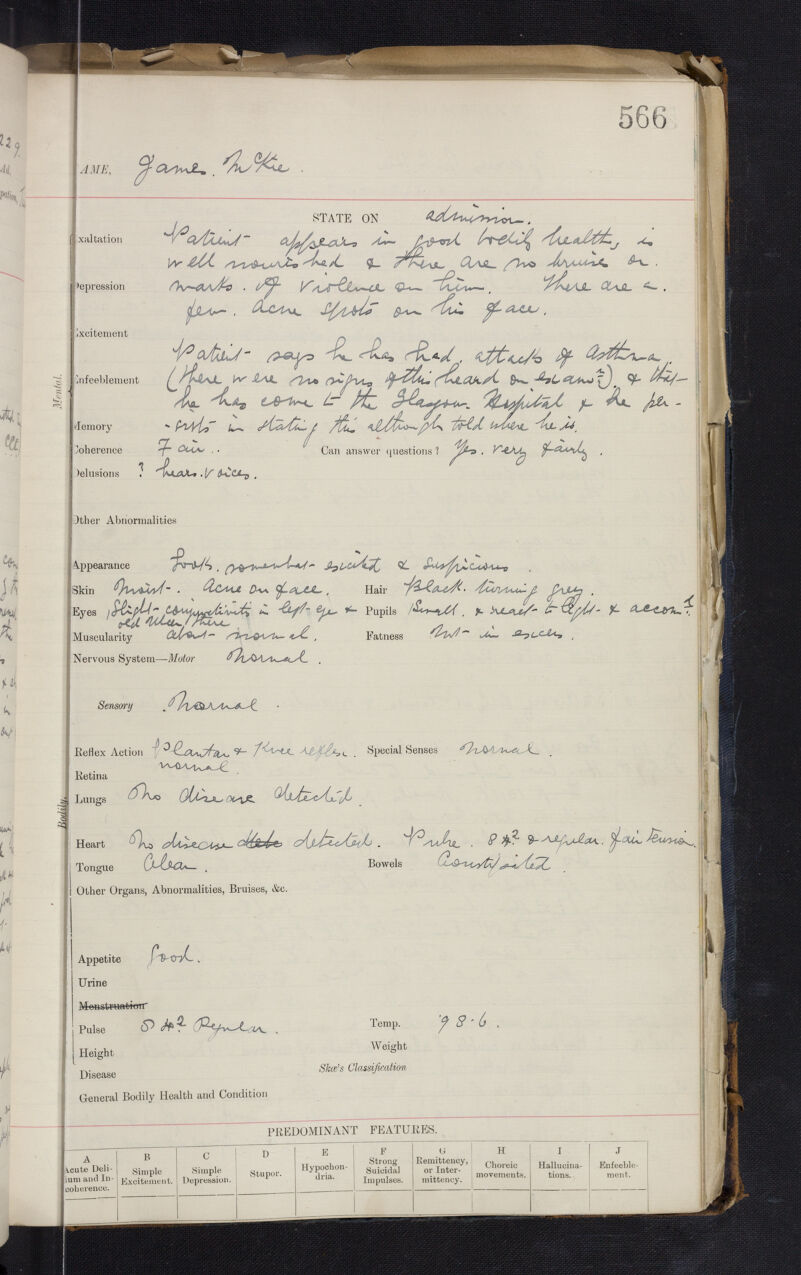 566
AME. James. McKie.
STATE ON admission.
xaltation Patient appears in good bodily health, is
well nourished & there are no bruises or
epression marks of violence on him. There are a
few. acne spots on his face.
xcitement
Patient says he has had attacks of asthma.
Mental.
nfeeblement (there were no signs of this heard on examn), & that
he has come to the Glasgow Hospital & he per-
Memory -sists in stating this although told where he is.
Coherence Fair.. Can answer questions? Yes. very fairly.
Delusions ? hears voices.
Other Abnormalities
Appearance Looks somewhat excited & suspicious.
Skin Moist. Acne on face. Hair Black turning grey.
Eyes Slight conjunctivitis in left eye & Pupils Small. & react to light & accomd.
old ulcer there
Muscularity about normal. Fatness Not in excess.
Nervous System—Motor Normal.
Sensory Normal.
Reflex Action Plantar & Knee reflex. Special Senses Normal.
normal.
Retina
Bodily.
Lungs No disease detected.
Heart No disease detected. Pulse. & regular. fair tension.
Tongue Clean. Bowels Constipated.
Other Organs, Abnormalities, Bruises, &c.
Appetite Good.
Urine
Menstruation
Pulse Regular. Temp. 98·6.
Height Weight
Disease Skæ's Classification
General Bodily Health and Condition
PREDOMINANT FEATURES.
A B C D E F G H I J
Acute Deli-
ium and In-
coherence.
Simple
Excitement.
Simple
Depression.
Stupor.
Hypochon-
dria.
Strong
Suicidal
Impulses.
Remittency,
or Inter-
mittency.
Choreic
movements.
Hallucina-
tions.
Enfeeble-
ment.